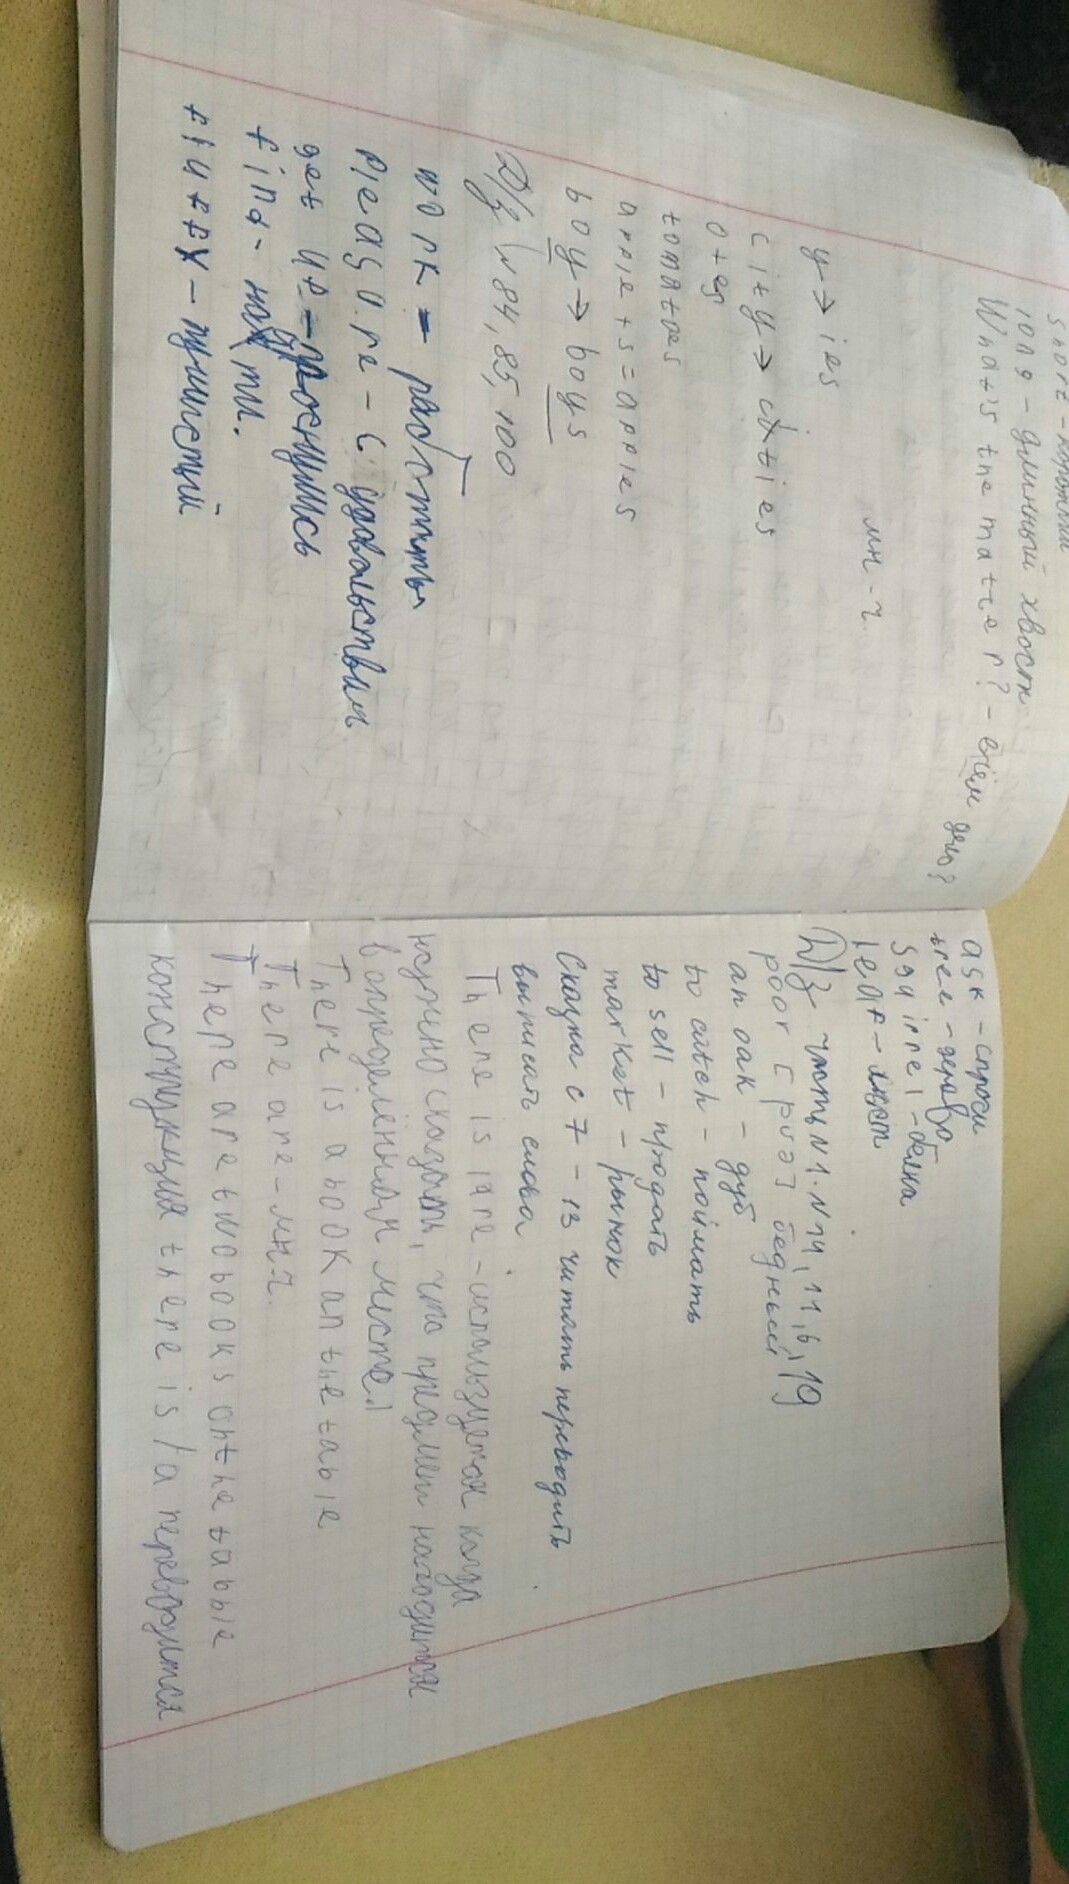 short - короткий
long - длинный хвост
What's the matter? - в чём дело?
мн-ч.
y → ies
city → cities
o+es
tomatoes
apple + s = apples
boy → boys
Д/з N 84, 85, 100
work - работать
Pleasure - с удовольствием.
get up - проснулись
find - найти.
fluffy - пушистый
ask - спроси
tree - дерево
Squirrel - белка
leaf - лист
Д/з часть N1. N 14, 11, 6, 19
poor [puə] бедный
an oak - дуб
to catch - поймать
to sell - продать
market - рынок
Сказка с 7 - 13 читать переводить
выписать слова
There is/are - используется когда
нужно сказать, что предмет находится
в определённом месте.
There is a book an the table
There are - мн.ч.
There are two books on the table
конструкция there is / a переводится